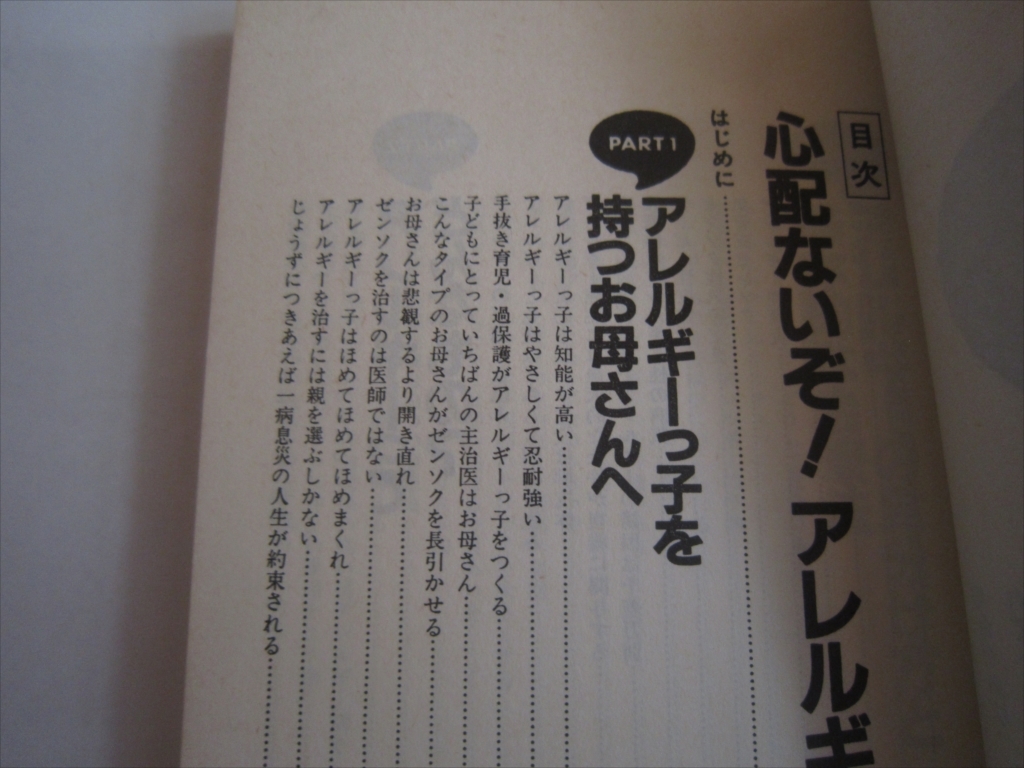 目次
心配ないぞ!アレルギ
はじめに
PART1
アレルギーっ子を
持つお母さんへ
アレルギーっ子は知能が高い
アレルギーっ子はやさしくて忍耐強い
手抜き育児・過保護がアレルギーっ子をつくる
子どもにとっていちばんの主治医はお母さん
こんなタイプのお母さんがゼンソクを長引かせる
お母さんは悲観するより開き直れ
ゼンソクを治すのは医師ではない
アレルギーっ子はほめてほめてほめまくれ
アレルギーを治すには親を選ぶしかない
じょうずにつきあえば一病息災の人生が約束される